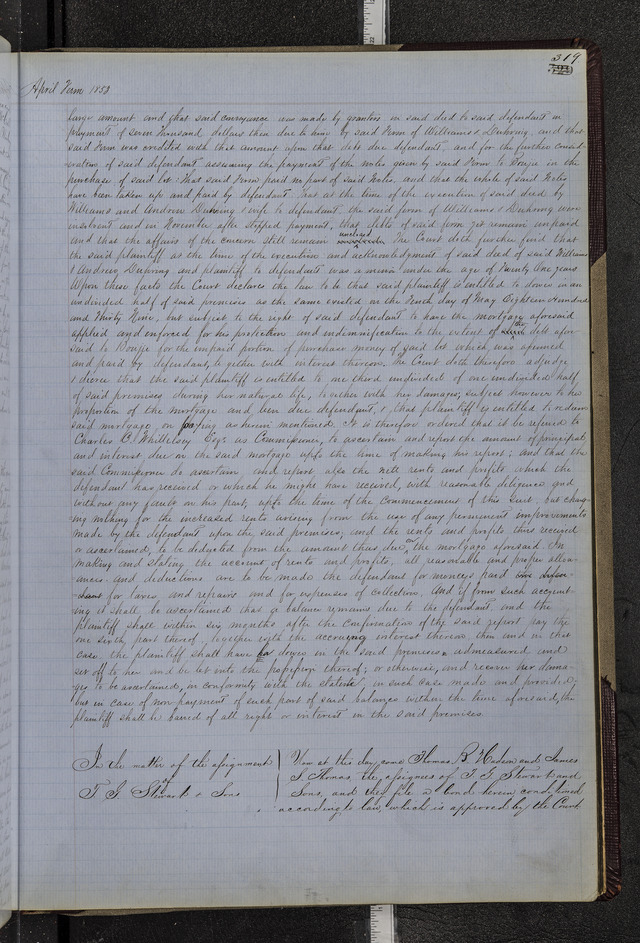 319
April Term 1858
large amount and that said conveyance was made by grantors in said deed to said defendant in
payment of seven thousand dollars then due to him by said firm of Williams & Duhring, and that
said firm was credited with that amount upon that debt due defendant, and for the further consid-
eration of said defendant assuming the payment of the notes given by said firm to Bouje in the
purchase of said lot: That said firm paid no part of said notes and that the whole of said notes
have been taken up and paid by defendant, that at the time of the execution of said deed by
Williams and Andrew Duhring & wife to defendant the said firm of Williams & Duhring were
insolvent and in November after stopped payment, that debts of said firm yet remain unpaid
and that the affairs of the concern still remain unclosed The Court doth further find that
the said plaintiff at the time of the execution and acknowledgment of said deed of said Williams
& Andrew Duhring and plaintiff to defendant was a minor under the age of Twenty One years
Upon these facts the Court declares the law to be that said plaintiff is entitled to dower in an
undivided half of said premises as the same existed on the Tenth day of May Eighteen Hundred
and Thirty Nine, but subject to the right of said defendant to have the mortgage aforesaid
applied and enforced for his protection and indemnification to the extent of the debt afore-
said to Bouje for the unpaid portion of purchase money of said lot which was assumed
and paid by defendant, together with interest thereon, the Court doth therefore adjudge
& decree that the said plaintiff is entitled to one third undivided of one undivided half
of said premises during her natural life, together with her damages, subject however to her
proportion of the mortgage and lien due defendant, & that plaintiff is entitled to redeem
said mortgage, on paying as herein mentioned. It is therefore ordered that it be referred to
Charles C. Whittelsey Esqr as Commissioner, to ascertain and report the amount of principal,
and interest due on the said mortgage upto the time of making his report; and that the
said Commissioner do ascertain and report, also the nett rents and profits, which the
defendant has received or which he might have received, with reasonable diligence and
without any fault on his part, upto the time of the commencement of this suit, but charg-
ing nothing for the increased rents arising from the use of any permanent improvements
made by the defendant upon the said premises, and the rents and profits thus received
or ascertained, to be deducted from the amount thus due on the mortgage aforesaid. In
making and stating the account of rents and profits, all reasonable and proper allow-
ances and deductions are to be made the defendant for moneys paid
for taxes and repairs and for expenses of collection. And if from such account-
ing it shall be ascertained that a balance remains due to the defendant, and the
plaintiff shall within six months after the confirmation of the said report pay the
one sixth part thereof, together with the accruing interest thereon, then and in that
case the plaintiff shall have her dower in the said premises admeasured and
set off to her and be let into the possession thereof, or otherwise, and recover her dama-
ges to be ascertained, in conformity with the statute, in such case made and provided;
but in case of non payment of such part of said balances within the time aforesaid, the
plaintiff shall be barred of all right or interest in the said premises
In the matter of the assignment
of
T. J. Stewart & Sons
Now at this day come Thomas B Hudson and James
S. Thomas, the assignees of T. J. Stewart and
Sons, and they file a bond herein conditioned
according to law, which is approved by the Court